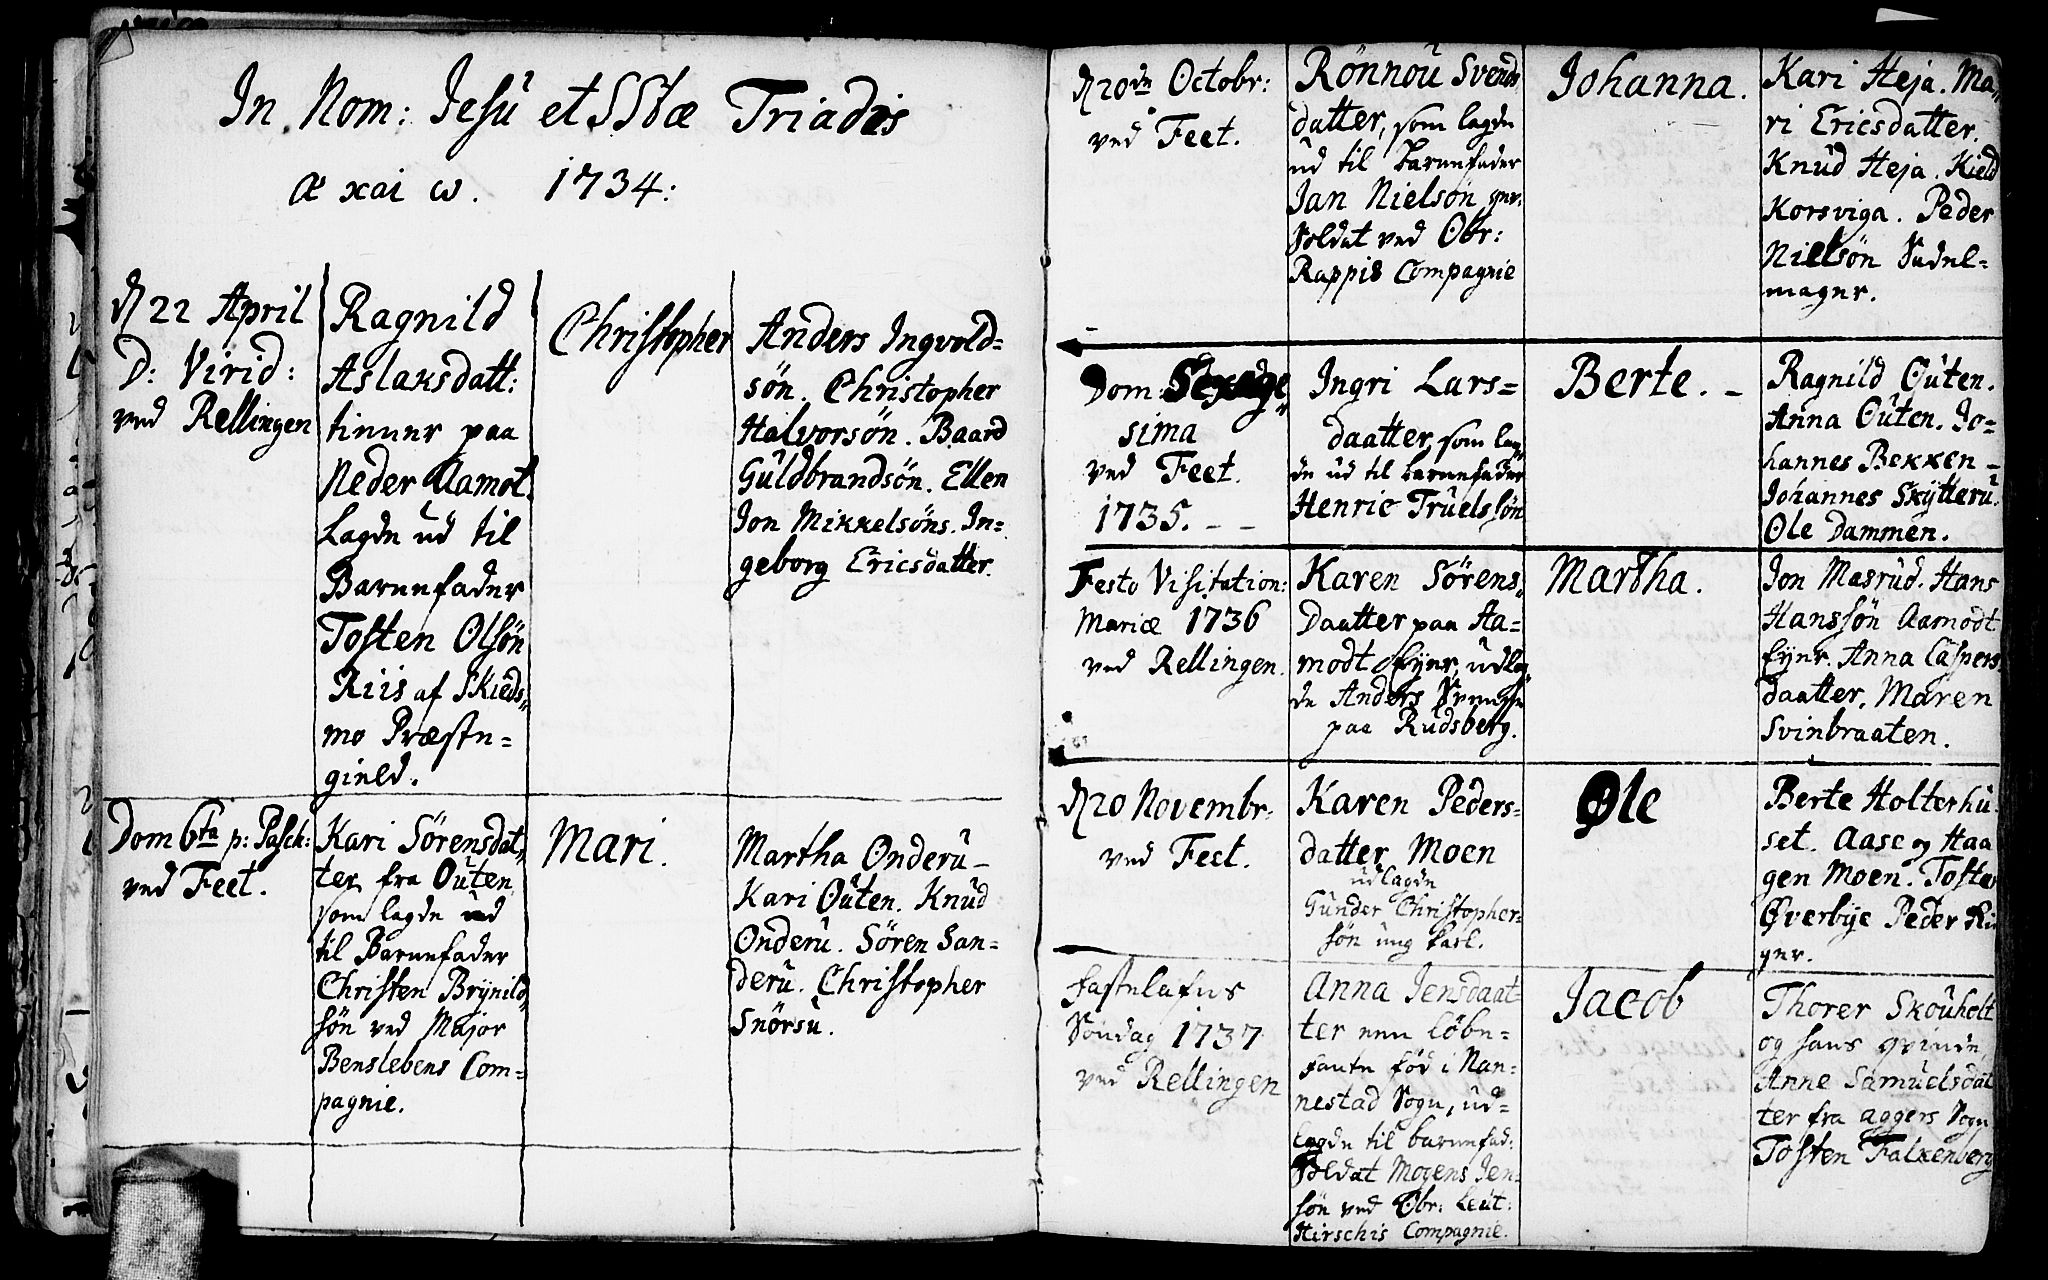 In Nom: Jesu et SStæ Triadis
α xai ω. 1734:
d 22 April
D: Virid:
ved Rellingen
Ragnild
Aslaksdatt:
tienner paa
Neder Aamot.
Lagde ud til
Barnefader
Tosten Olsön
Riis af Skieds„
mo Præste=
gield.
Christopher
Anders Ingvold=
sön. Christopher
Halvorsön. Baard
Guldbrandsön. Ellen
Jon Mikkelsöns. In=
geborg Ericsdatter.
Dom 6ta p: Pasch:
ved Feet.
Kari Sörensdat„
ter fra Outen
som lagde ud
til Barnefader
Christen Brynild„
sön ved Major
Benslebens Com=
pagnie.
Mari.
Martha Onderu_
Kari Outen. Knud
Onderu. Sören San=
deru. Christopher
Snörsu.
d 20de Octobr:
ved Feet.
Rönnou Svends
datter, som lagde
ud til barnefader
Jan Nielsön gev.
Soldat ved Obr:
Rappis Compagnie
Johanna.
Kari Heja. Ma„
ri Ericsdatter.
Knud Heja. Kield
Korsviga. Peder
Nielsön Sadel=
mager.
Dom: Sexage„
sima
ved Feet.
1735. _ _
Ingri Lars=
daatter, som lag„
de ud til barnefader
Henric Truelssön
Berte. _
Ragnild Outen.
Anna Outen. Jo=
hannes Bekken _
Johannes Skytteru.
Ole Dammen.
Festo Visitation:
Mariæ 1736
ved Rellingen.
Karen Sörens„
Daatter paa Aa=
modt Eyer, udlag„
de Anders
paa Rudsberg.
Martha.
Jon Masrud. Hans
Hanssön Aamodt
Eyer. Anna Caspers
daatter. Maren
Svinbraaten.
d 20 Novembr:
ved Feet.
Karen Peders=
datter Moen
udlagde
Gunder Christopher=
sön ung karl.
Ole
Berte Holterhu
set. Aase og Haa
gen Moen. Tosten
Øverbye Peder Ri
ger.
Fastelafns
Söndag 1737
ved Rellingen
Anna Jensdaat=
ter een löbe=
fante föd i Nan=
nestad Sogn, ud=
lagde til barnefad:
Soldat Mogens Jen=
sön ved Obr: Leut:
Hirschis Compagnie.
Jacob
Thorer Skouholt
og hans qvinde
Anne Samuelsdat
ter fra Aggers Sogn
Tosten Falkenberg